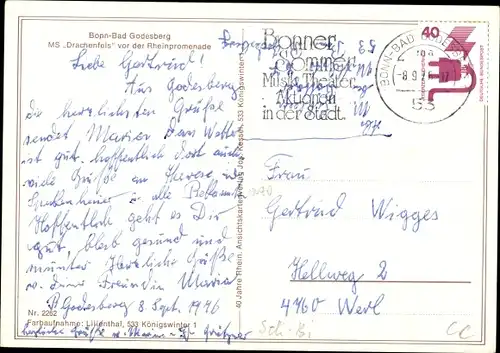 Bonn-Bad Godesberg
MS „Drachenfels" vor der Rheinpromenade
Liebe Gertrud!
Aus Godesberg
die herzlichsten Grüße
sendet Maria. Das Wetter
ist gut, hoffentlich dort auch
viele Grüße an Therese u.
alle Bekannte
Hoffentlich geht es Dir
gut, bleib gesund und
munter Herzliche Grüße
Deine Freundin Maria
B. Godesberg 8 Sept. 1976
Nr. 2262
Farbaufnahme: Lilienthal, 533 Königswinter 1
herzliche Grüße
40 Jahre Rhein. Ansichtskartenverlag Jos. Kessel, 533 Königswinter 1
Bonner
Sommer
Musik Theater
Aktionen
in der Stadt.
BONN-BAD GODESBERG
53
40
DEUTSCHE BUNDESPOST
Frau
Gertrud Wigges
Hellweg 2
4760 Werl
CC